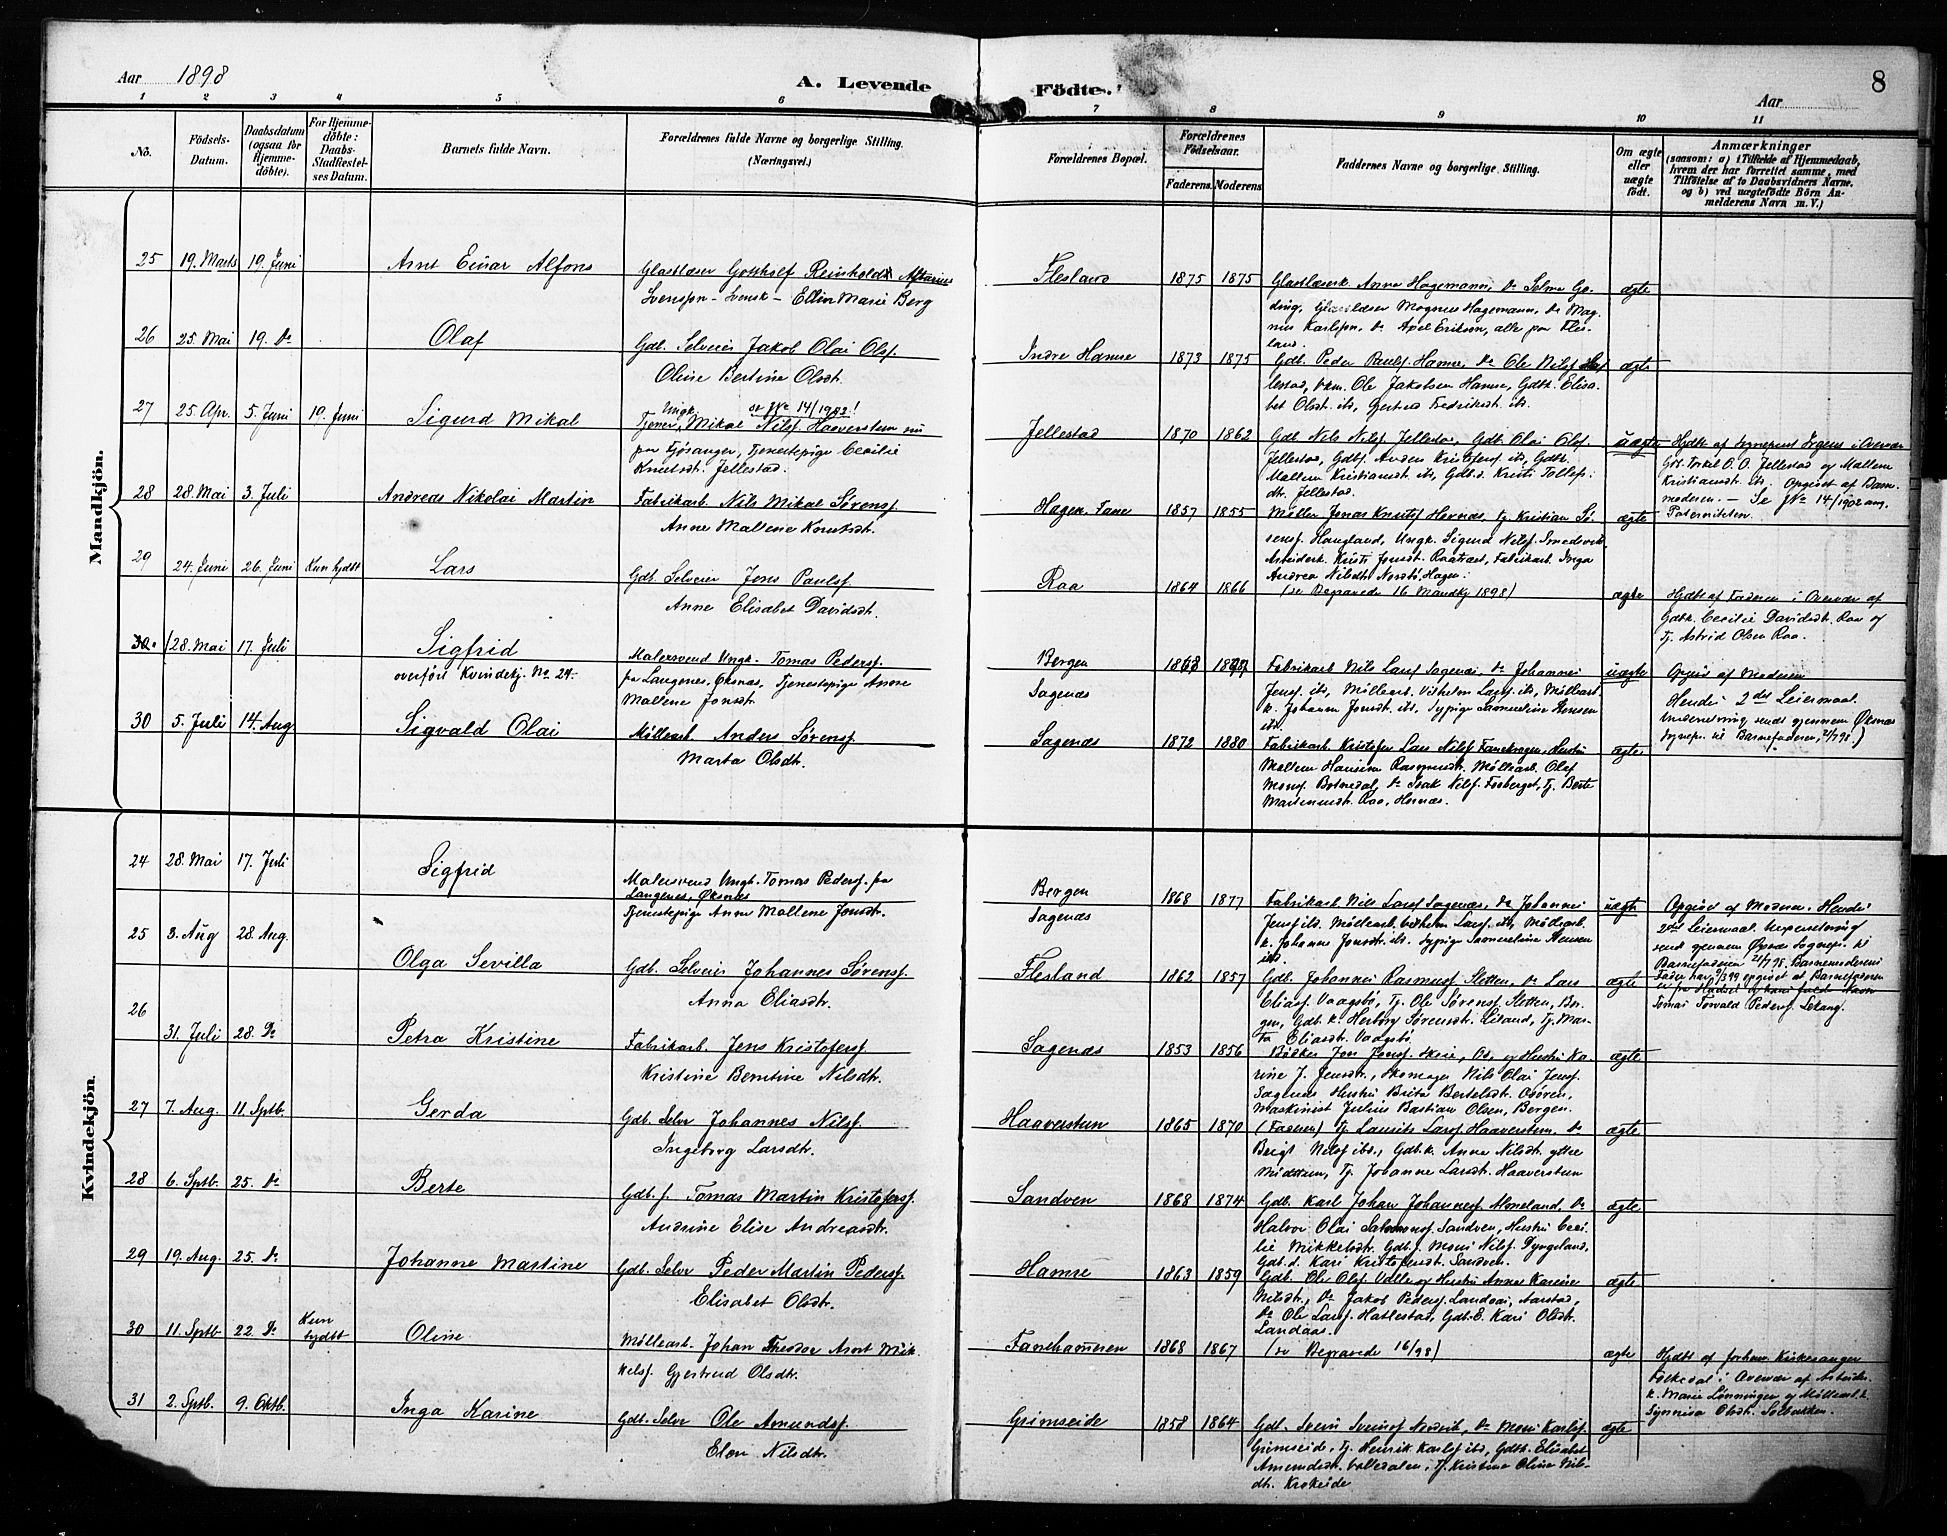 Aar 1898
A. Levende Fødte.
8
Aar
1 2 3 4 5 6 7 8 9 10 11
No.
Födsels-Datum.
Daabsdatum (ogsaa for Hjemme-døbte).
For Hjemme-døbte: Daabs-Stadfæstel-ses Datum.
Barnets fulde Navn.
Forældrenes fulde Navne og borgerlige Stilling.
(Næringsvei.)
Forældrenes Bopæl.
Forældrenes Födselsaar.
Faderens. Moderens
Faddernes Navne og borgerlige Stilling.
Om ægte eller uægte født.
Anmærkninger
(saasom: a) i Tilfælde af Hjemmedaab,
hvem der har forrettet samme, med
Tilføielse af to Daabsvidners Navne,
og b) ved uægtefødte Börn An-
melderens Navn m. V.)
Mandkjön.
25 19. Marts 19. Juni Arnt Einar Alfons
Svensson - Svensk - Ellin Marie Berg
Flesland 1875 1875
land.
ægte
26 25. Mai 19. Do Olaf
Gdb. Selveier Jakob Olai Olsf.
Oline Bertine Olsdt.
Indre Hamre 1873 1875 Gdb. Peder Paulsf. Hamre, Do Ole Nilsf.
lestad, Ole Jakobsen Hamre, Gdbk. Elisa-
bet Olsdt. ibs, Gjertrud Fredriksdt. ibs.
ægte
27 25. Apr. 5. Juni 19. Juni Sigurd Mikal
Ungk. se No 14/1902!
Tjener, Mikal Nilsf. Haaverstun nu
paa Fjösanger, Tjenestepige Cecilie
Knutsdt. Jellestad.
Jellestad 1870 1862 Gdb. Nils Nilsf. Jellestad, Gdb. Olai Olsf.
Jellestad, Gdbf. Anders Kristofersf. ibs, Gdbk.
Mallene Kristiansdt. ibs, Gdb.d. Kristi Tollefs-
dt. Jellestad.
uægte
Kristiansdt. ibs. Opgivet af Barne-
moderen. - Se No 14/1902 ang.
Paterniteten.
28 28. Mai 3. Juli Andreas Nikolai Martin
Fabrikarb. Nils Mikal Sørensf.
Anne Mallene Knutsdt.
Hagen, Fane 1857 1855 Møller Jonas Knutsf. Hornæs, Tj. Kristian Sø-
rensf. Haugland, Ungk. Sigurd Nilsf. Smedsvik,
Andrea Nilsdt. Nordbö, Hagen.
ægte
29 24. Juni 26. Juni Kun hjdbt Lars
Gdb. Selveier Jens Paulsf.
Anne Elisabet Davidsdt.
Raa 1864 1866 (se Begravede 16 Mandkj 1898)
ægte
Hjdbt af Faderen i Overvær af
Gdbk. Cecilie Davidsdt. Raa og
Tj. Astrid Olsen Raa.
30. 28. Mai 17. Juli Sigfrid
overført Kvindekj. No. 24.
Malersvend Ungk. Tomas Pedersf.
fra Langenes, Øksnæs, Tjenestepige Anne
Mallene Jonsdt.
Bergen
Sagenæs
1868 1877 Fabrikarb. Nils Larsf. Sagenæs, Do Johannes
Jensf. ibs, Møllearb. Vilhelm Larsf. ibs, Møllearb.
k. Johanna Jonsdt. ibs, Sypige Samueline Hansen
ibs.
uægte
Opgivet af Moderen
Hendes 2det Leiermaal.
Underretning sendt gjennem Øksnæs
Sognepr. til Barnefaderen, 21/7 98.)
30 5. Juli 14. Aug Sigvald Olai
Møllearb. Anders Sørensf.
Marta Olsdt.
Sagenæs 1872 1880 Fabrikarb. Kristofer Lars Nilsf. Faneskogen, Hustru
Mallene Hansine Rasmusdt. Møllearb. Olaf
Monsf. Botnedal, Do Isak Nilsf. Fosberget, Tj. Berte
Martinusdt. Raa, Hornæs.
ægte
Kvindekjön.
24 28. Mai 17. Juli Sigfrid
Malersvend Ungk. Tomas Pedersf. fra
Langenes, Øksnæs
Tjenestepige Anne Mallene Jonsdt.
Bergen
Sagenæs
1868 1877 Fabrikarb. Nils Larsf. Sagenæs, Do Johannes
Jensf. ibs. Møllearb. Vilhelm Larsf. ibs, Møllearb.
k. Johanna Jonsdt. ibs. Sypige Samueline Hansen
ibs.
uægte
Opgivet af Moderen. Hendes
2det Leiermaal. Underretning
sendt gjennem Øksnæs Sognepr. til
Barnefaderen 21/7 98. Barnemoderens
Fader har 9/3 99 opgivet at Barnefaderen
Tomas Torvald Pedersf. Selang.
25 3. Aug 28. Aug. Olga Sevilla
Gdb. Selveier Johannes Sørensf.
Anna Eliasdtr.
Flesland 1862 1857 Gdb. Johannes Rasmusf. Sletten, Do Lars
Eliasf. Vaagsbö, Tj. Ole Sørensf. Sletten, Ber-
gen, Gdb. k. Herborg Sørensdt. Liland, Tj. Mar-
ta Eliasdt. Vaagsbö.
ægte
26 31. Juli 28. Do Petra Kristine
Fabrikarb. Jens Kristofersf.
Kristine Berntine Nilsdtr.
Sagenæs 1853 1856 Bødker Jens Jensf. Skeie, Os, og Hustru Ka-
rine J. Jensdtr., Skomager Nils Olai Jensf.
Sagenæs Hustru Brita Bertelsdt. Osören,
Maskinist Julius Bastian Olsen, Bergen.
ægte
27 7. Aug. 11. Sptb. Gerda
Gdb. Selvr Johannes Nilsf.
Ingeborg Larsdtr.
Haaverstun 1865 1870 (Faderen) Tj. Laurits Larsf. Haaverstun, Do
Beigt Nilsf. ibs., Gdb.k. Anne Nilsdt. ytre
Midttun, Tj. Johanne Larsdt. Haaverstun
ægte
28 6. Sptb. 25. Do Berte
Gdb.f. Tomas Martin Kristofersf.
Andrine Elise Andreasdtr.
Sandven 1868 1874 Gdb. Karl Johan Johannesf. Moneland, Do
Halvor Olai Salomonsf. Sandven, Hustru Ceci-
lie Mikkelsdtr. Gdb.f. Mons Nilsf. Dyngeland,
Gdb.d. Kari Kristofersdt. Sandven.
ægte
29 19. Aug. 25. Do Johanne Martine
Gdb. Selvr Peder Martin Pedersf.
Elisabet Olsdtr.
Hamre 1863 1859 Gdb. Ole Olsf. Valle og Hustru Anna Karine
Nilsdtr., Do Jakob Pedersf. Landaas, Aarstad,
Do Ole Larsf. Hatlestad, Gdb.E. Kari Olsdt.
Landaas.
ægte
30 11. Sptb 22. Do Kun hjdbt Oline
Møllearb. Johan Theodor Arnt Mik-
kelsf. Gjertrud Olsdtr.
Fanehammeren 1868 1867 (se Begravede 16/98)
ægte
Hjdbt af forhenv. Kirkesanger
k. Marie Lönninger og Møllearb.k.
31 2. Sptb. 9. Oktb. Inga Karine
Gdb. Selvr Ole Amundsf.
Elen Nilsdtr.
Grimseide 1858 1864 Gdb. Sveni Svensf. Nordvik, Do Mons Karlsf.
Grimseide, Tj. Henrik Karlsf. ibs, Gdbk. Elisabet
Amundsdt. Valledalen, Tj. Kristine Oline Nils-
dt. Krokeide
ægte